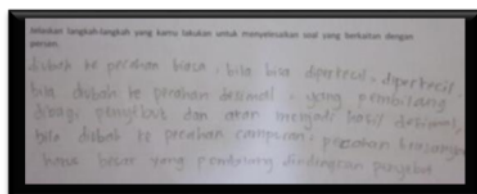 Jelaskan langkah-langkah yang kamu lakukan untuk menyelesaikan soal yang berkaitan dengan
persen.
diubah ke pecahan biasa, bila bisa diperkecil = diperkecil.
bila diubah ke pecahan desimal, yang pembilang
dibagi penyebut dan akan menjadi hasil desimal,
bila diubah ke pecahan campuran, pecahan biasanya
harus besar yang pembilang dindingkan penyebut